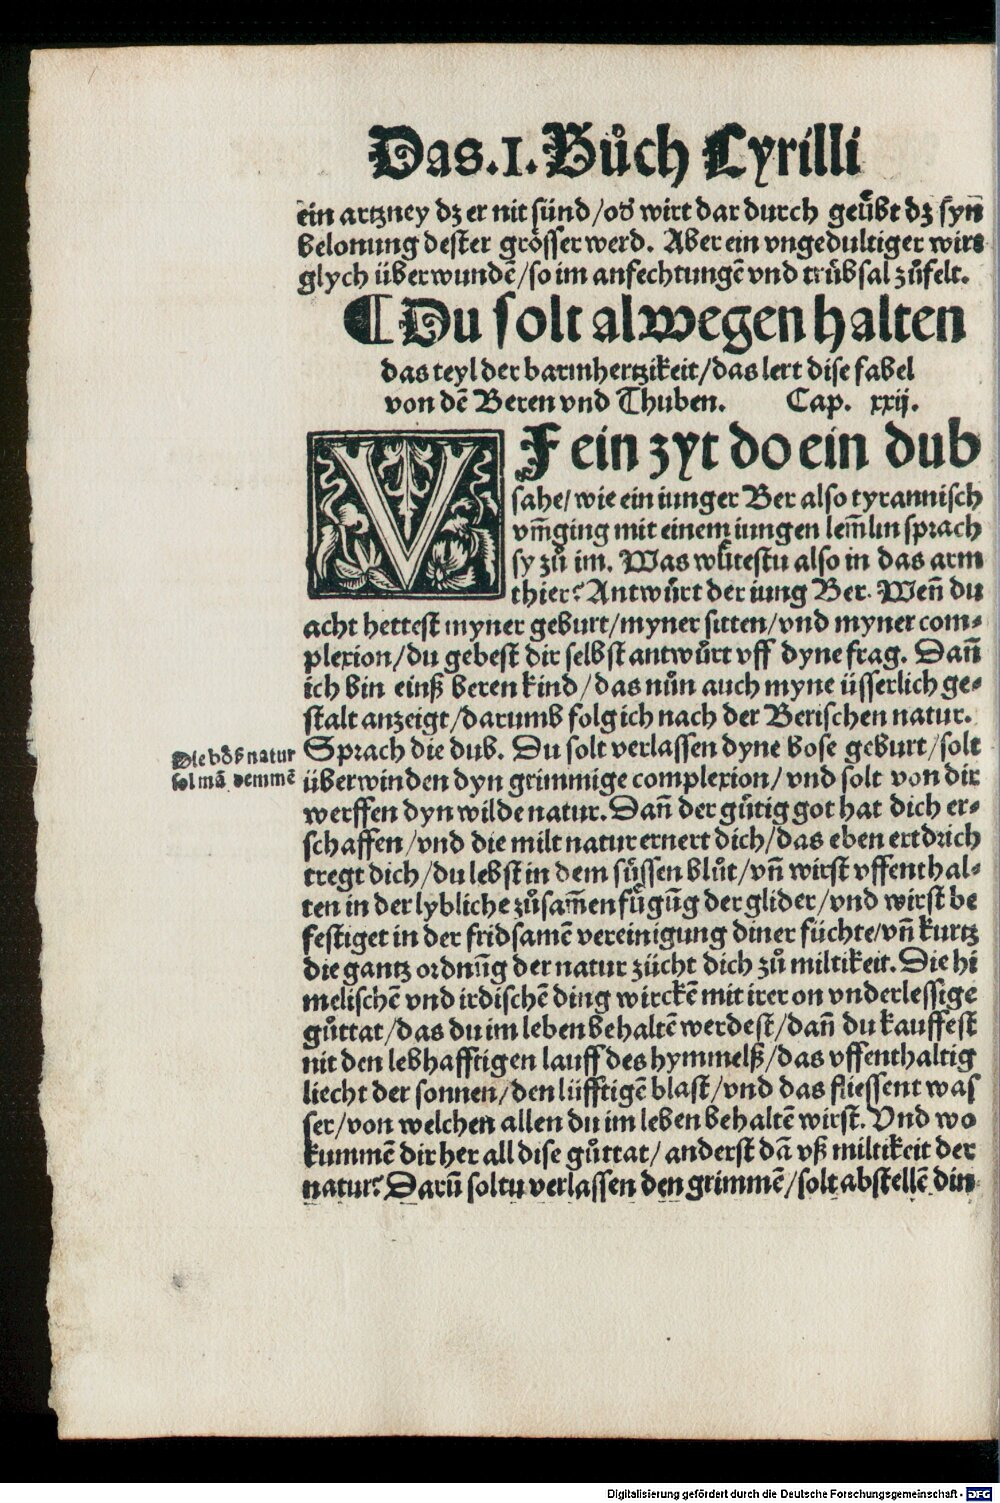 Das.I.Bůch Cyrilli
ein artzney dz er nit sünd/oď wirt dar durch geübt dz syn
belonung dester grösser werd. Aber ein vngedultiger wirt
glych überwundē/so im anfechtungē vnd trübsal zůfelt.
¶Du solt alwegen halten
das teyl der barmhertzikeit/das lert dise fabel
von dē Beren vnd Thuben. Cap. xxij.
VF ein zyt do ein dub
sahe/wie ein iunger Ber also tyrannisch
vm̄ging mit einem iungen lem̄lin sprach
sy zů im. Was wütestu also in das arm
thier? Antwürt der iung Ber. Wen̄ du
acht hettest myner geburt/myner sitten/vnd myner com⸗
plexion/du gebest dir selbst antwürt vff dyne frag. Dan̄
ich bin einß beren kind/das nůn auch myne üsserlich ge⸗
stalt anzeigt/darumb folg ich nach der Berischen natur.
Sprach die dub. Du solt verlassen dyne bose geburt/solt
Die böß natur
sol mā demmē
überwinden dyn grimmige complexion/vnd solt von dir
werffen dyn wilde natur. Dan̄ der gütig got hat dich er⸗
schaffen/vnd die milt natur ernert dich/das eben ertdrich
tregt dich/du lebst in dem süssen blůt/vn̄ wirst vffenthal⸗
ten in der lybliche zůsam̄enfügūg der glider/vnd wirst be
festiget in der fridsamē vereinigung diner füchte/vn̄ kurtz
die gantz ordnūg der natur zücht dich zů miltikeit. Die hi
melischē vnd irdischē ding wirckē mit irer on vnderlessige
gůttat/das du im leben behaltē werdest/dan̄ du kauffest
nit den lebhafftigen lauff des hymmelß/das vffenthaltig
liecht der sonnen/den lüfftigē blast/vnd das fliessent was
ser/von welchen allen du im leben behaltē wirst. Vnd wo
kummē dir her all dise gůttat/anderst dā vß miltikeit der
natur? Darū soltu verlassen den grimmē/solt abstellē din
Digitalisierung gefördert durch die Deutsche Forschungsgemeinschaft - DFG